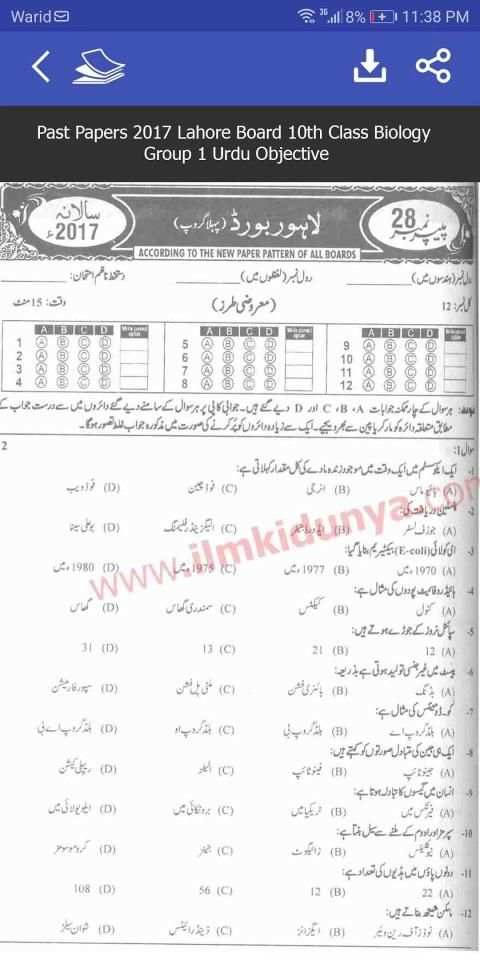 Warid 3G 8% 11:38 PM
Past Papers 2017 Lahore Board 10th Class Biology
Group 1 Urdu Objective
پیپر نمبر 28 لاہور بورڈ (پہلا گروپ) سالانہ 2017ء
ACCORDING TO THE NEW PAPER PATTERN OF ALL BOARDS
رول نمبر (ہندسوں میں) رول نمبر (لفظوں میں) دستخط ناظم امتحان:
کل نمبر: 12 (معروضی طرز) وقت: 15 منٹ
A B C D A B C D A B C D
1 A B C D 5 A B C D 9 A B C D
2 A B C D 6 A B C D 10 A B C D
3 A B C D 7 A B C D 11 A B C D
4 A B C D 8 A B C D 12 A B C D
ہر سوال کے چار ممکنہ جوابات A، B، C اور D دیے گئے ہیں۔ جوابی کاپی پر ہر سوال کے سامنے دیے گئے دائروں میں سے درست جواب کے
مطابق متعلقہ دائرہ کو مارکر یا پین سے بھر دیجیے۔ ایک سے زیادہ دائروں کو پُر کرنے کی صورت میں مذکورہ جواب غلط تصور ہوگا۔
سوال 1: 2
1- ایک ایکوسسٹم میں ایک وقت میں موجود زندہ مادے کی کل مقدار کہلاتی ہے:
(A) بائیوماس (B) انرجی (C) فوڈ چین (D) فوڈ ویب
2- دریافت کی:
(A) جوزف لسٹر (B) (C) الیگزینڈر فلیمنگ (D) بوعلی سینا
3- ای کولائی (E-coli) بیکٹیریم بنایا گیا:
(A) 1970ء میں (B) 1977ء میں (C) 1975ء میں (D) 1980ء میں
4- ہائیڈروفائیٹ پودوں کی مثال ہے:
(A) کنول (B) کیکٹس (C) سمندری گھاس (D) گھاس
5- سپائنل نروز کے جوڑے ہوتے ہیں:
(A) 12 (B) 21 (C) 13 (D) 31
6- ییسٹ میں غیر جنسی تولید ہوتی ہے بذریعہ:
(A) بڈنگ (B) بائنری فشن (C) ملٹی پل فشن (D) سپور فارمیشن
7- کو۔ڈومیننس کی مثال ہے:
(A) بلڈ گروپ اے (B) بلڈ گروپ بی (C) بلڈ گروپ او (D) بلڈ گروپ اے بی
8- ایک ہی جین کی متبادل صورتوں کو کہتے ہیں:
(A) جینوٹائپ (B) فینوٹائپ (C) الیلز (D) ریپلی کیشن
9- انسان میں گیسوں کا تبادلہ ہوتا ہے:
(A) فیرنکس میں (B) ٹریکیا میں (C) برونکائی میں (D) ایلویولائی میں
10- سپرمز اور اووم کے ملنے سے سیل بنتا ہے:
(A) نیوکلیئس (B) زائیگوٹ (C) جینز (D) کروموسومز
11- دونوں پاؤں میں ہڈیوں کی تعداد ہے:
(A) 22 (B) 12 (C) 56 (D) 108
12- مائلن شیتھ بناتے ہیں:
(A) نوڈز آف رینویئر (B) ایگزانز (C) ڈینڈرائیٹس (D) شوان سیلز
www.ilmkidunya.com